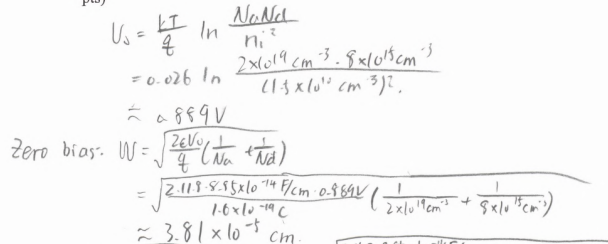 pts)
U₀ = kT/q ln NaNd/ni²
= 0.026 ln 2×10¹⁹ cm⁻³ · 8×10¹⁵ cm⁻³ / (1.5×10¹⁰ cm⁻³)².
≈ 0.889V
Zero bias. W = √(2εV₀/q (1/Na + 1/Nd))
= √(2·11.8·8.85×10⁻¹⁴ F/cm·0.889V / 1.6×10⁻¹⁹ C (1/2×10¹⁹cm⁻³ + 1/8×10¹⁵cm⁻³))
≈ 3.81 × 10⁻⁵ cm.